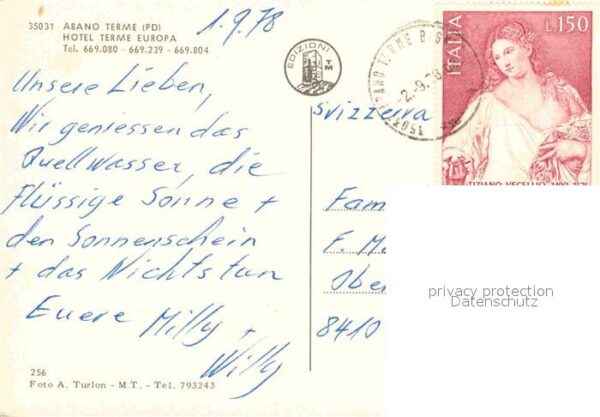 35031 ABANO TERME (PD)
HOTEL TERME EUROPA
Tel. 669.080 - 669.239 - 669.804
1.9.78
EDIZIONI
TM
ITALIA
L.150
TIZIANO VECELLIO
ABANO TERME
-2.-9.78
Svizzera
Unsere Lieben,
Wir geniessen das
Quellwasser, die
flüssige Sonne +
den Sonnenschein
+ das Nichtstun
Euere Milly +
Willy
Fam
F. M
Ober
8410
privacy protection
Datenschutz
256
Foto A. Turlon - M.T. - Tel. 793243